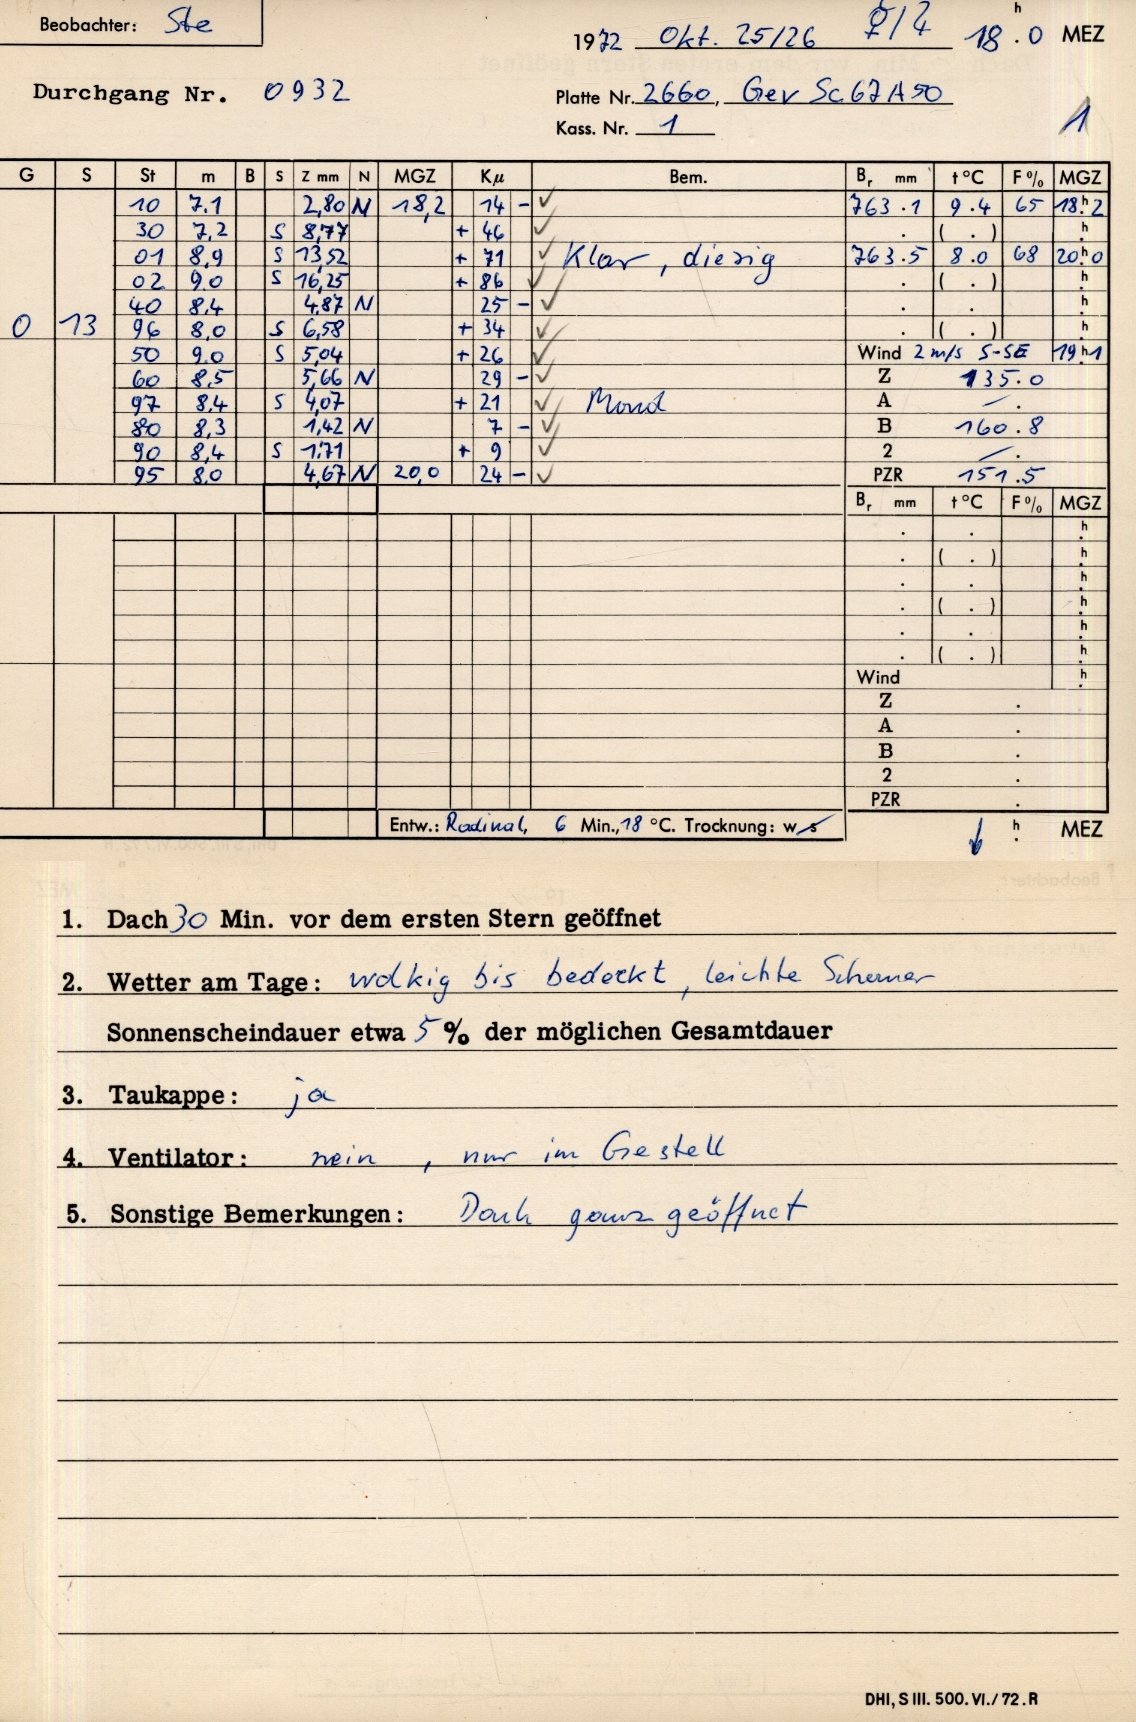 Beobachter: Ste
1972 Okt. 25/26 ☿/♃ 18.0 h MEZ
Durchgang Nr. 0932
Platte Nr. 2660, Gev Sc67A50
Kass. Nr. 1
1
G S St m B S Z mm N MGZ Kµ Bem. Br mm t °C F % MGZ
10 7.1 2,80 N 18,2 14 - ✓ 763.1 9.4 65 18.h2
30 7,2 S 8,77 + 46 ✓ . ( . ) h
01 8,9 S 13,52 + 71 ✓ Klar, diesig 763.5 8.0 68 20.h0
02 9.0 S 16,25 + 86 ✓ . ( . ) h
40 8.4 4,87 N 25 - ✓ . . h
0 13 96 8,0 S 6,58 + 34 ✓ . ( . ) h
50 9.0 S 5,04 + 26 ✓ Wind 2 m/s S-SE 19.h1
60 8,5 5,66 N 29 - ✓ Z 135.0
97 8.4 S 4,07 + 21 ✓ Mond A — .
80 8,3 1,42 N 7 - ✓ B 160.8
90 8,4 S 1,71 + 9 ✓ 2 — .
95 8.0 4,67 N 20,0 24 - ✓ PZR 151.5
Br mm t °C F % MGZ
. . h
. ( . ) h
. . h
. ( . ) h
. . h
. ( . ) h
Wind h
Z .
A .
B .
2 .
PZR .
Entw.: Rodinal, 6 Min., 18 °C. Trocknung: w s
h MEZ
1. Dach 30 Min. vor dem ersten Stern geöffnet
2. Wetter am Tage: wolkig bis bedeckt, leichte Schauer
Sonnenscheindauer etwa 5 % der möglichen Gesamtdauer
3. Taukappe: ja
4. Ventilator: nein, nur im Gestell
5. Sonstige Bemerkungen: Dach ganz geöffnet
DHI, S III. 500. VI./72. R